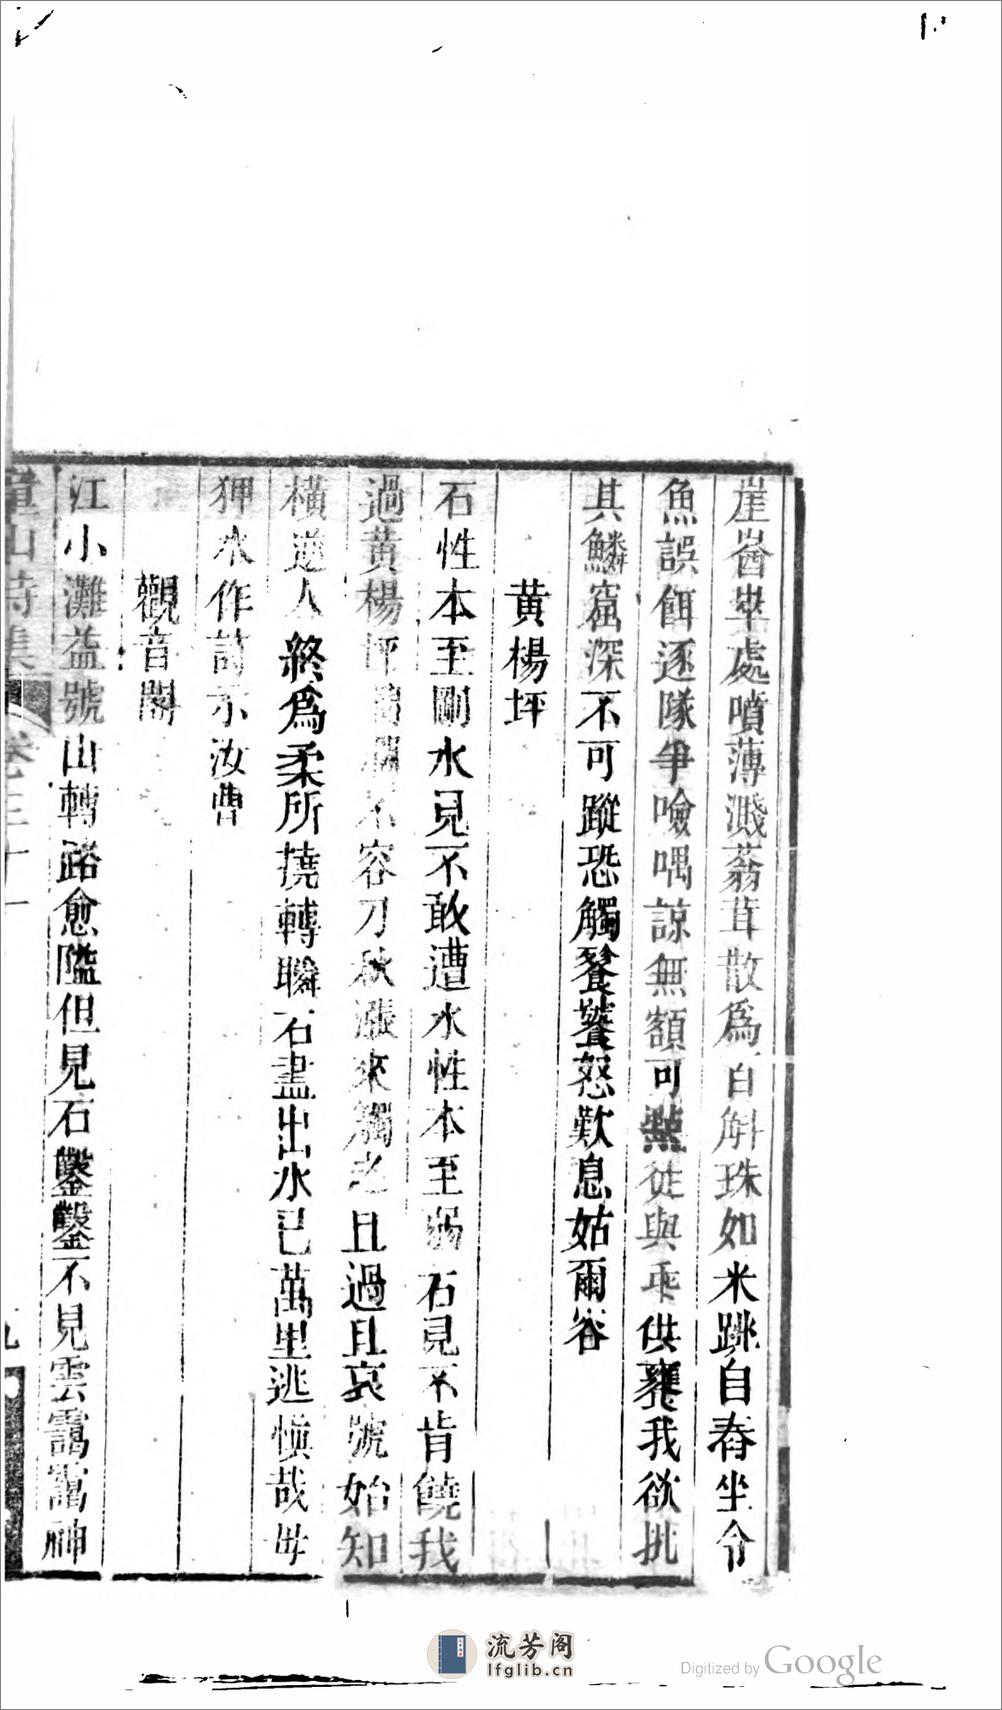 崖崷崒處噴薄濺蓊茸散為百斛珠如米跳自舂坐令
魚誤餌逐隊爭噞喁諒無額可點徒與乖供饔我欲批
其鱗窟深不可蹤恐觸餐饕怒歎息姑爾容
黃楊坪
石性本至剛水見不敢遭水性本至弱石見不肯饒我
過黃楊坪不容刀秋漲來觸之且過且哀號始知
橫逆人終為柔所撓轉瞬石盡出水已萬里逃慎哉毋
狎水作詩示汝曹
觀音閣
江小灘益號山轉路愈隘但見石鑿鑿不見雲靄靄神
童山詩集 卷三十一
九
流芳阁
lfglib.cn
Digitized by Google